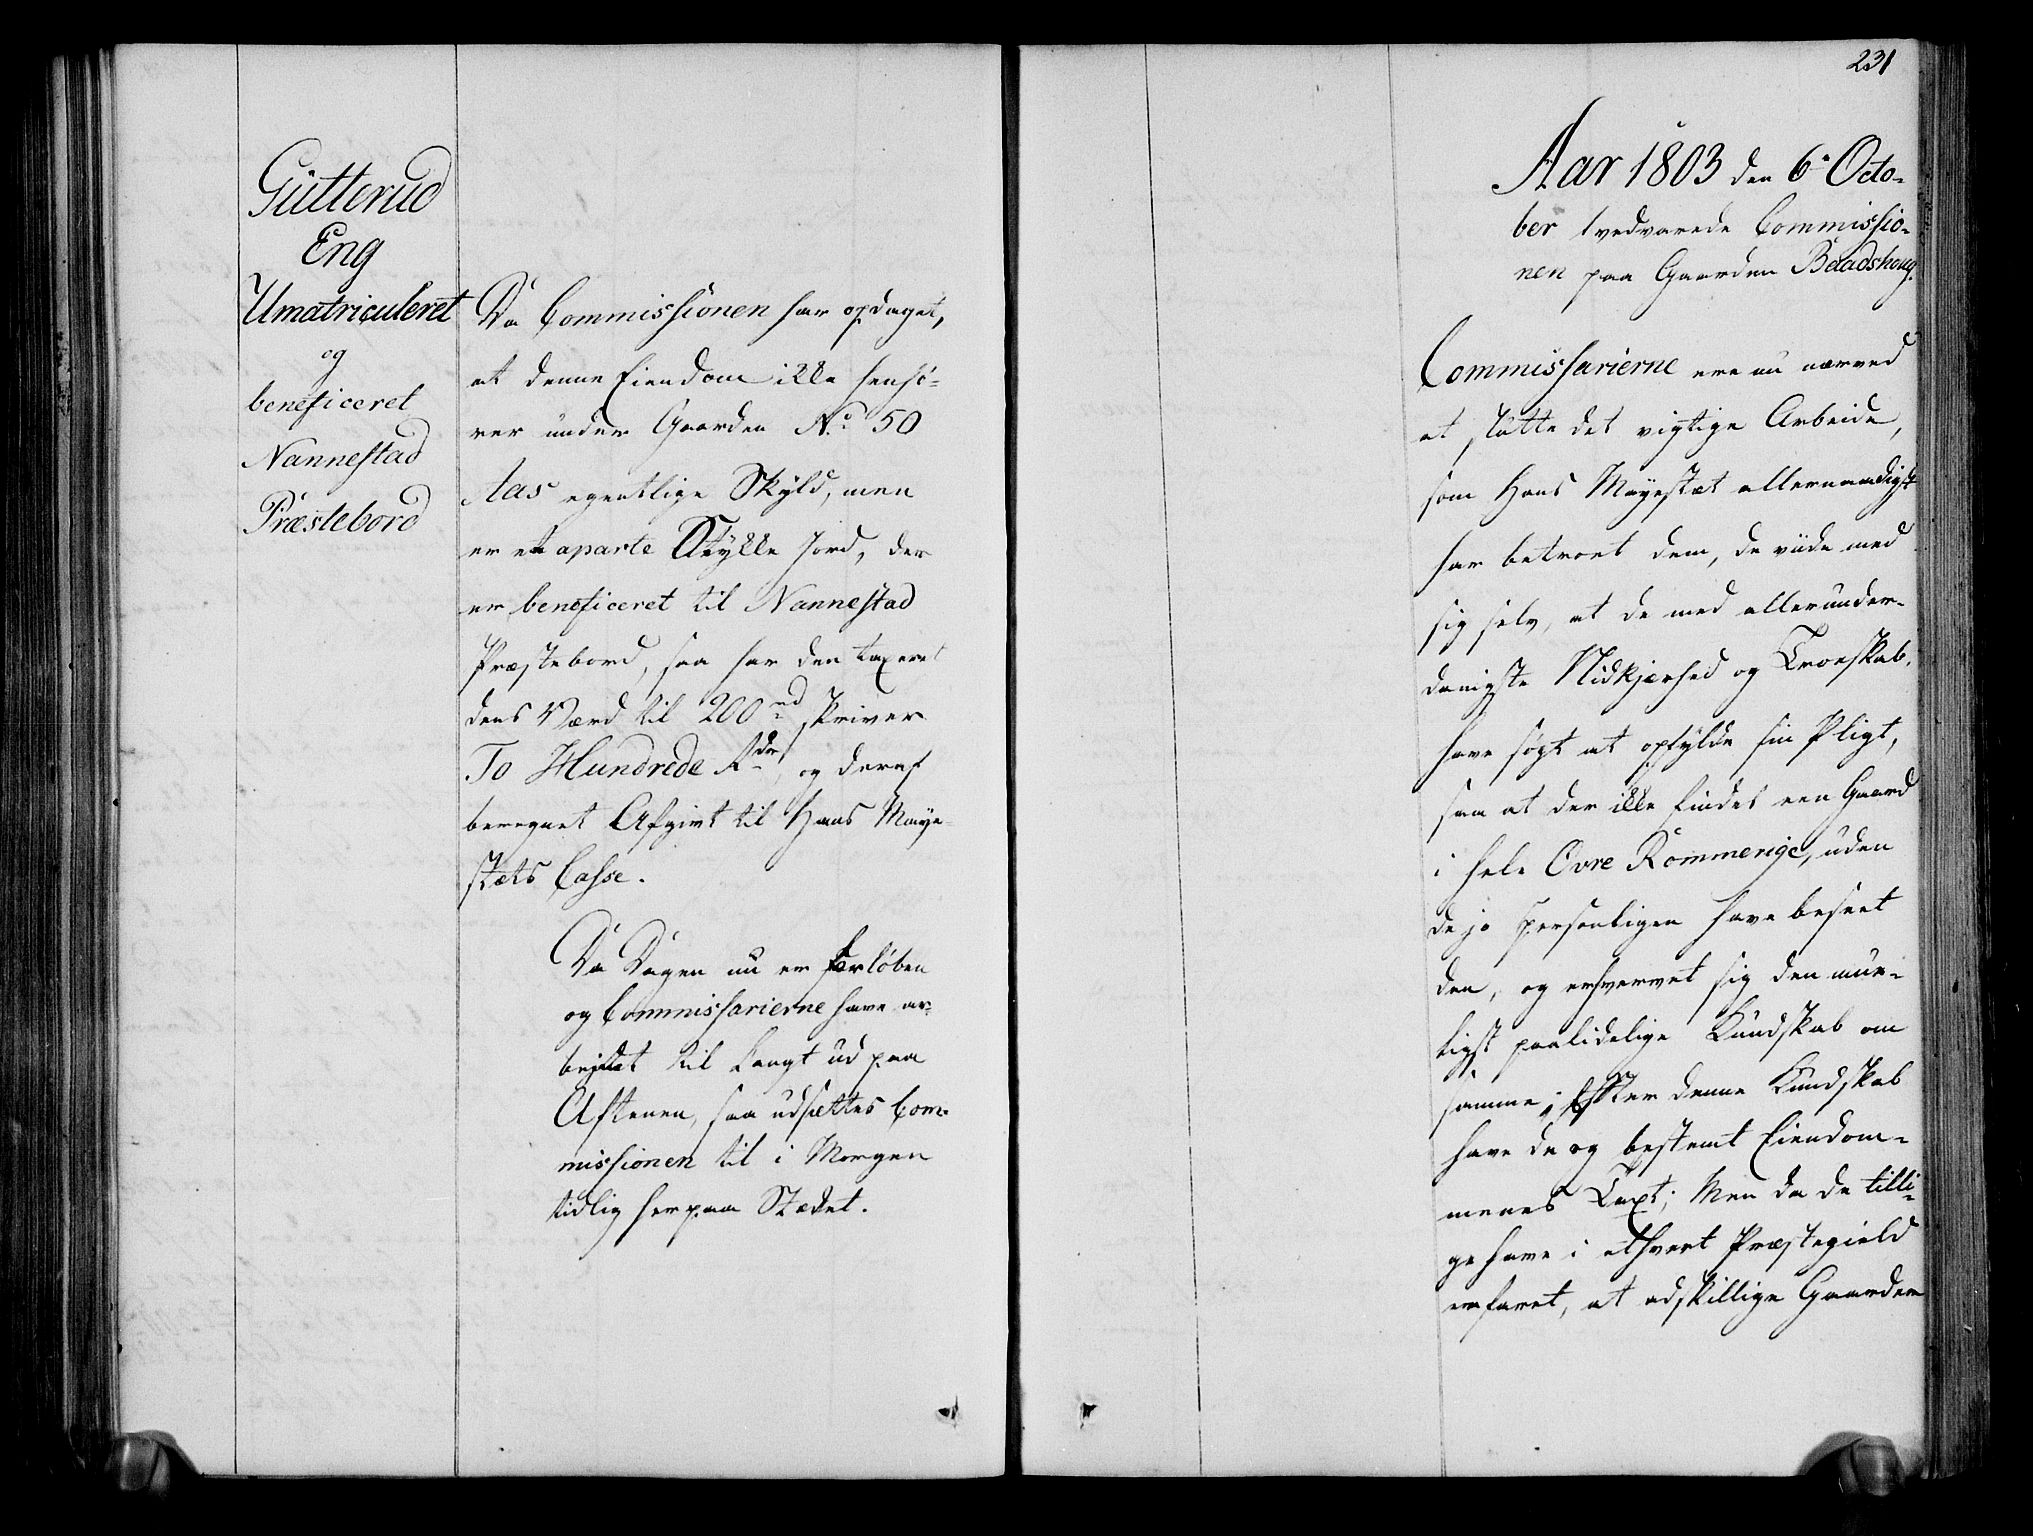 Gutterud
Eng
Umatriculeret
og
beneficeret
Nannestad
Præstebord
Da Commissionen har opdaget,
at denne Eiendom ikke henhö-
rer under Gaarden No. 50
Aas egentlige Skyld, men
er et aparte Stykke Jord, der
er beneficeret til Nannestad
Præstebord, saa har den taxeret
dens Værd til 200 rd skriver
To Hundrede Rdr, og deraf
beregnet Afgivt til Hans Maye-
stæts Casse.
Da Dagen nu er forlöben
og Commissarierne have ar-
bejdet til Langt ud paa
Aftenen, saa udsættes Com-
missionen til i Morgen
tidlig her paa Stædet.
231
Aar 1803 den 6. Octo-
ber vedvarede Commissio-
nen paa Gaarden Baadshoug.
Commissarierne ere nu nærved
at slutte det vigtige Arbeide,
som Hans Mayestæt allernaadigst
har betroet dem, de viide med
sig selv, at de med allerunder-
danigste Nidkjærhed og Troeskab,
have søgt at opfylde sin Pligt,
saa at der ikke findes een Gaard
i hele Övre Rommerige, uden
de jo personligen have beseet
den, og erhvervet sig den mue-
ligst paalidelige Kundskab om
samme; Efter denne Kundskab
have de og bestemt Eiendom-
menes Taxt; Men da de tilli-
ge have i ethvert Præstegield
erfaret, at adskillige Gaarder